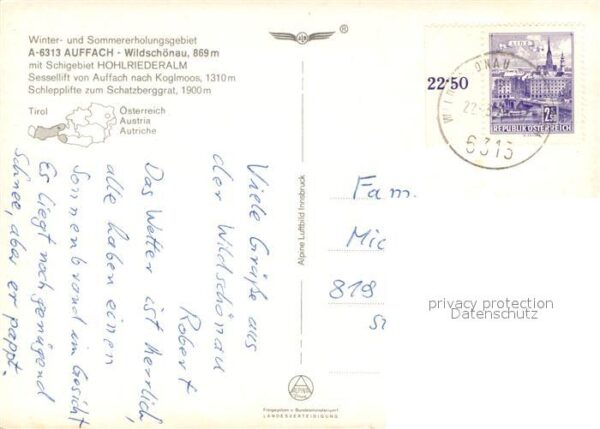 Winter- und Sommererholungsgebiet
A-6313 AUFFACH - Wildschönau, 869 m
mit Schigebiet HOHLRIEDERALM
Sessellift von Auffach nach Koglmoos, 1310 m
Schlepplifte zum Schatzberggrat, 1900 m
Tirol
Österreich
Austria
Autriche
®
22·50
LINZ
2S
REPUBLIK ÖSTERREICH
6313
Viele Grüße aus
der Wildschönau
Robert
Das Wetter ist herrlich,
alle haben einen
Sonnenbrand im Gesicht
Es liegt noch genügend
Schnee, aber er pappt.
Alpine Luftbild Innsbruck
Fam.
Mic
819
St
privacy protection
Datenschutz
ALPINE
Freigegeben v. Bundesministerium f.
LANDESVERTEIDIGUNG